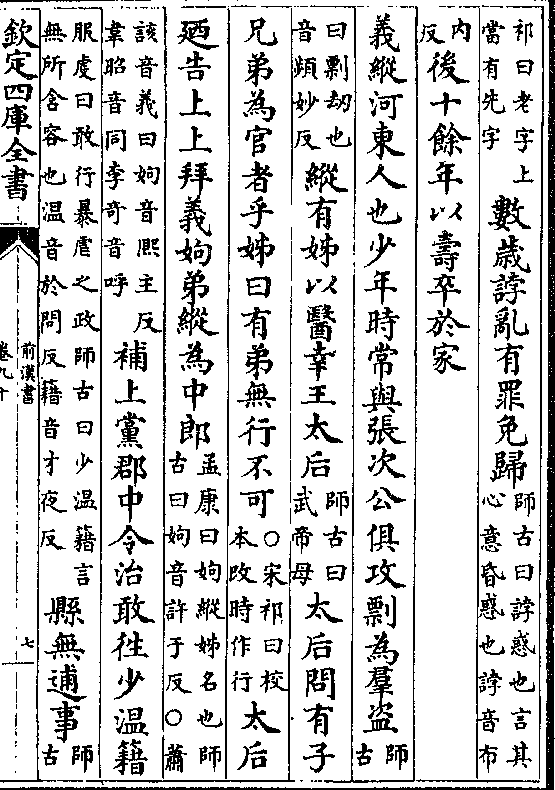 祁曰老字上
當有先字
數歲誖亂有罪免歸
師古曰誖惑也言其
心意昏惑也誖音布
内
反
後十餘年以壽卒於家
義縱河東人也少年時常與張次公俱攻剽為羣盜
師
古
曰剽刼也
音頻妙反
縱有姊以醫幸王太后
師古曰
武帝母
太后問有子
兄弟為官者乎姊曰有弟無行不可
○宋祁曰校
本改時作行
太后
廼告上上拜義姁弟縱為中郎
孟康曰姁縱姊名也師
古曰姁音許于反○蕭
該音義曰姁音熈主反
韋昭音同李奇音呼
補上黨郡中令治敢往少温籍
服虔曰敢行暴虐之政師古曰少温籍言
無所含容也温音於問反籍音才夜反
縣無逋事
師
古
欽定四庫全書
前漢書
卷九十
七